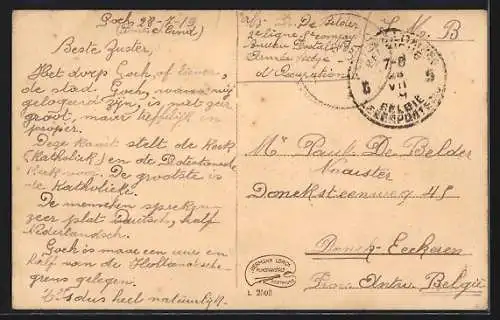 Goch 28-7-19
Beste Zuster,
Het dorp Goch, of liever,
de stad Goch, waar wij
gelogerd zijn, is niet zeer
groot, maar tamelijk en
proper.
Deze kaart stelt de Kerk
(Katholiek) en de Protestantsche
Kerk voor. De grootste is
de Katholieke.
De menschen spreken
zeer plat Deutsch, half
Nederlandsch.
Goch is maar een uur en
half van de Hollandsche
grens gelegen.
't Is dus heel natuurlijk.
De Belder
2e Ligne 5e Compagn
Bureau Postal
Armée belge
d'Occupation
S. M. B
7-8
28
VII
5 5
BELGIE
Mr Paul De Belder
Donksteenweg 45
Donck-Eeckeren
Prov. Antw. Belgie
L. 2108